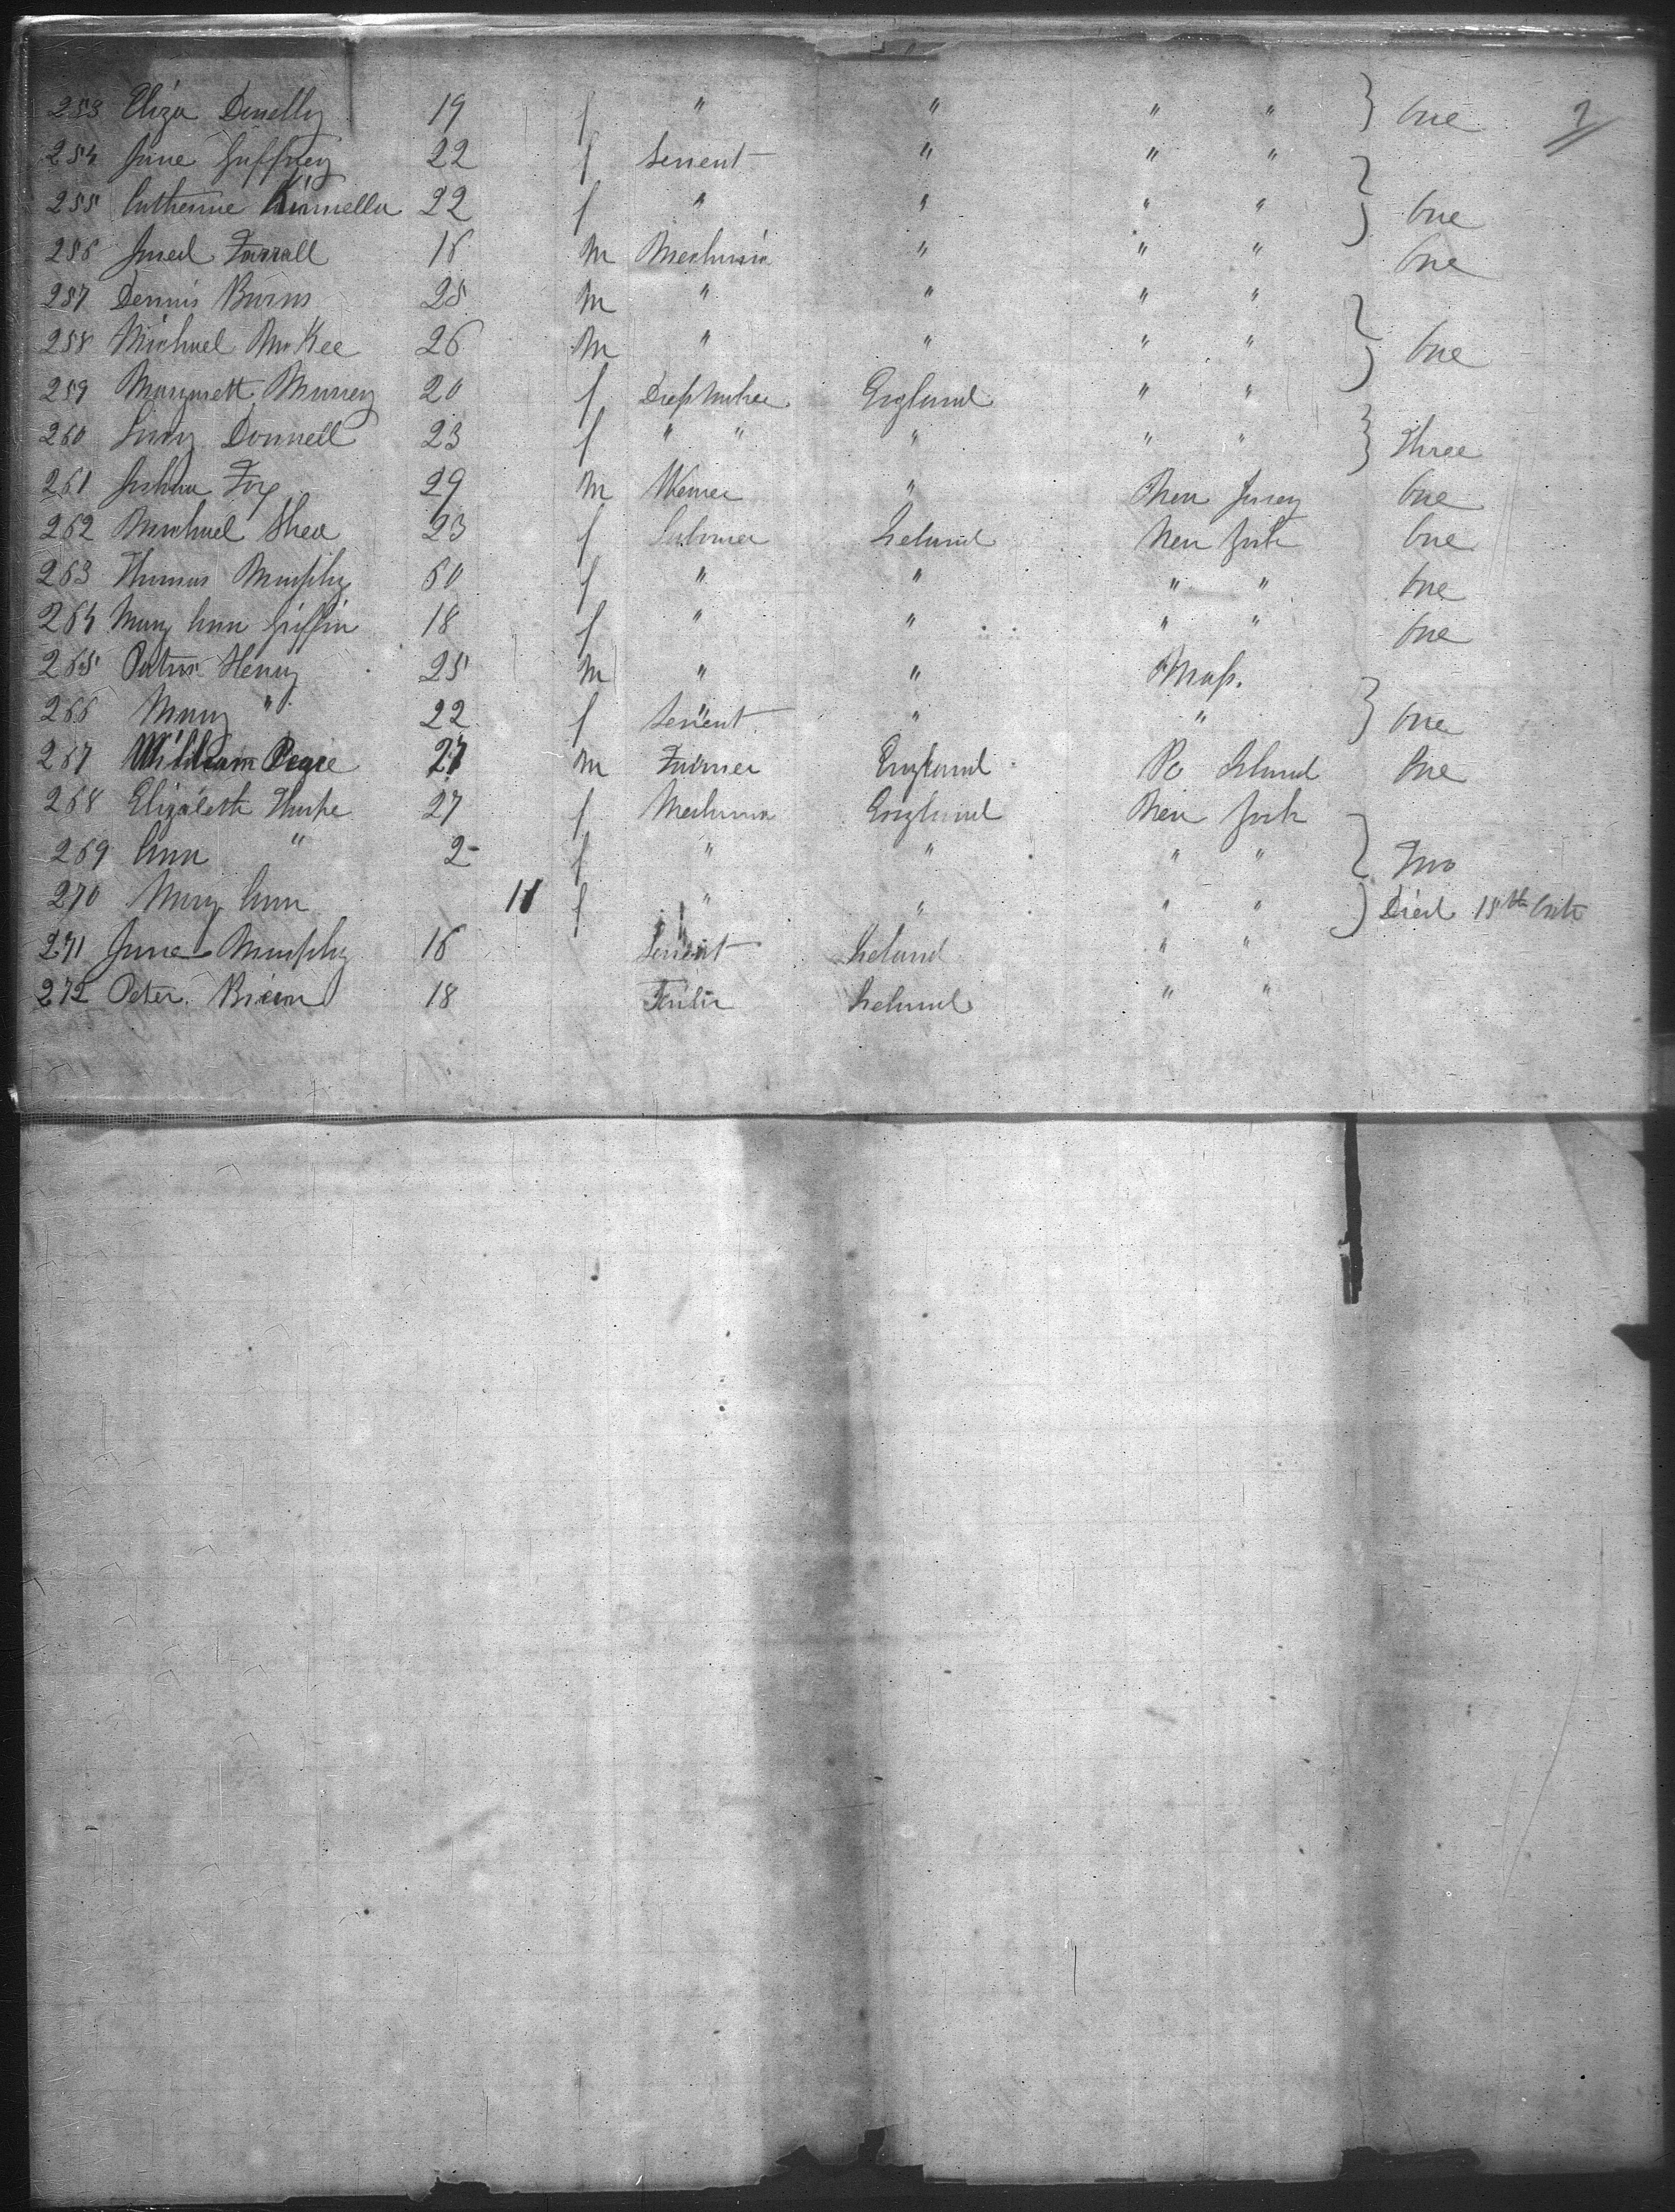 253 Eliza Donelly 19 f " " " " } One 7
254 Jane Gaffney 22 f Servent " " "
255 Catherine Kinnella 22 f " " " " } One
256 Farrall 16 m Mechanic " " " One
257 Dennis Burns 25 m " " " "
258 Michael McKee 26 m " " " " } One
259 Margarett Murrey 20 f Dressmaker England " "
260 Donnell 23 f " " " " " } Three
261 Joshua Fox 29 m Wever " New Jersey One
262 Michael Shea 23 f Laborer Ireland New York One
263 Thomas Murphy 60 f " " " " One
264 Mary Ann Griffin 18 f " " " " One
265 Patric Henry 25 m " " Mass.
266 Mary " 22 f Servent " " } One
267 William 27 m Farmer England Ro Island One
268 Elizabeth Tharpe 27 f Mechanic England New York
269 Ann " 2 f " " " " } Two
270 Mary Ann 11 f " " " " } Died 15th Octr
271 Jane Murphy 16 Servent Ireland " "
272 Peter 18 Ireland " "